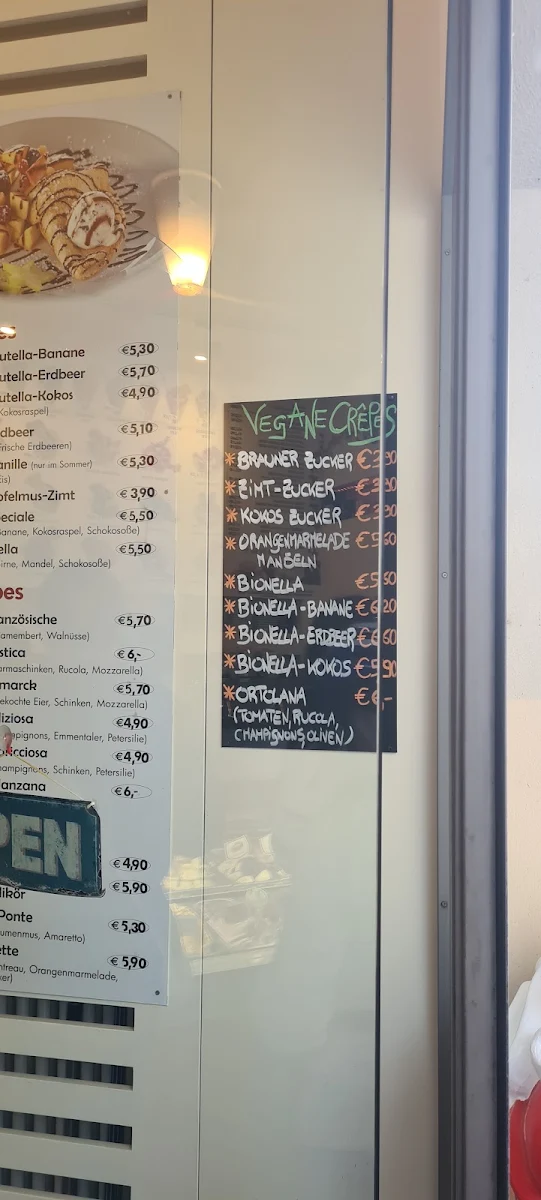 es
utella-Banane €5,30
utella-Erdbeer €5,70
utella-Kokos €4,90
Kokosraspel)
dbeer €5,10
frische Erdbeeren)
anille (nur im Sommer) €5,30
Eis)
pfelmus-Zimt €3,90
peciale €5,50
Banane, Kokosraspel, Schokosoße)
ella €5,50
irne, Mandel, Schokosoße)
pes
anzösische €5,70
amembert, Walnüsse)
stica €6,-
armaschinken, Rucola, Mozzarella)
marck €5,70
ekochte Eier, Schinken, Mozzarella)
liziosa €4,90
mpignons, Emmentaler, Petersilie)
pricciosa €4,90
hampignons, Schinken, Petersilie)
anzana €6,-
PEN
€4,90
likör €5,90
Ponte €5,30
umenmus, Amaretto)
ette €5,90
ntreau, Orangenmarmelade,
ker)
VEGANE CRÊPES
*BRAUNER ZUCKER
*ZIMT-ZUCKER
*KOKOS ZUCKER
*ORANGENMARMELADE €5,60
MANDELN
*BIONELLA €5,50
*BIONELLA-BANANE €6,20
*BIONELLA-ERDBEER €6,60
*BIONELLA-KOKOS €5,90
*ORTOLANA €6,-
(TOMATEN, RUCOLA,
CHAMPIGNONS, OLIVEN)